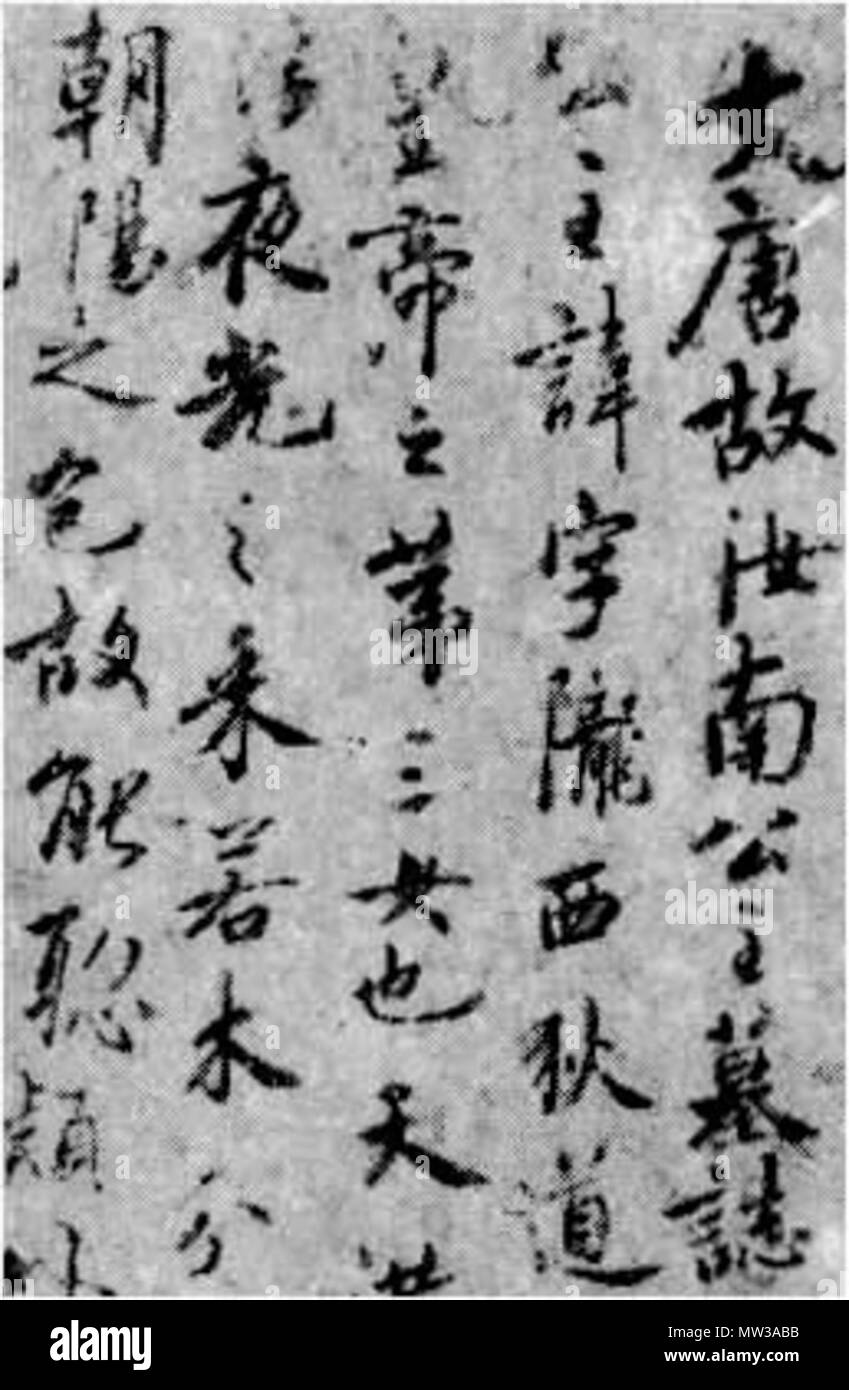 大唐故汝南公主墓誌
公主諱字隴西狄道
皇帝之第三女也天
浮夜光之采若木分
朝陽之色故能聰穎外
alamy
Image ID: MW3ABB
www.alamy.com